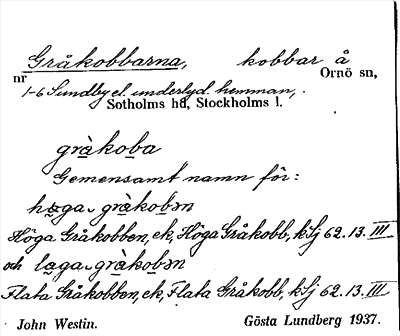 Gråkobbarna, kobbar å
nr Ornö sn,
1-6 Sundby el. underlyd. hemman,
Sotholms hd, Stockholms l.
gràkoba
Gemensamt namn för:
høga gràkobən
Höga Gråkobben, ek, Höga Gråkobb, klj 62.13.III
och laga gràkobən
Flata Gråkobben, ek, Flata Gråkobb, klj 62.13.III
John Westin. Gösta Lundberg 1937.